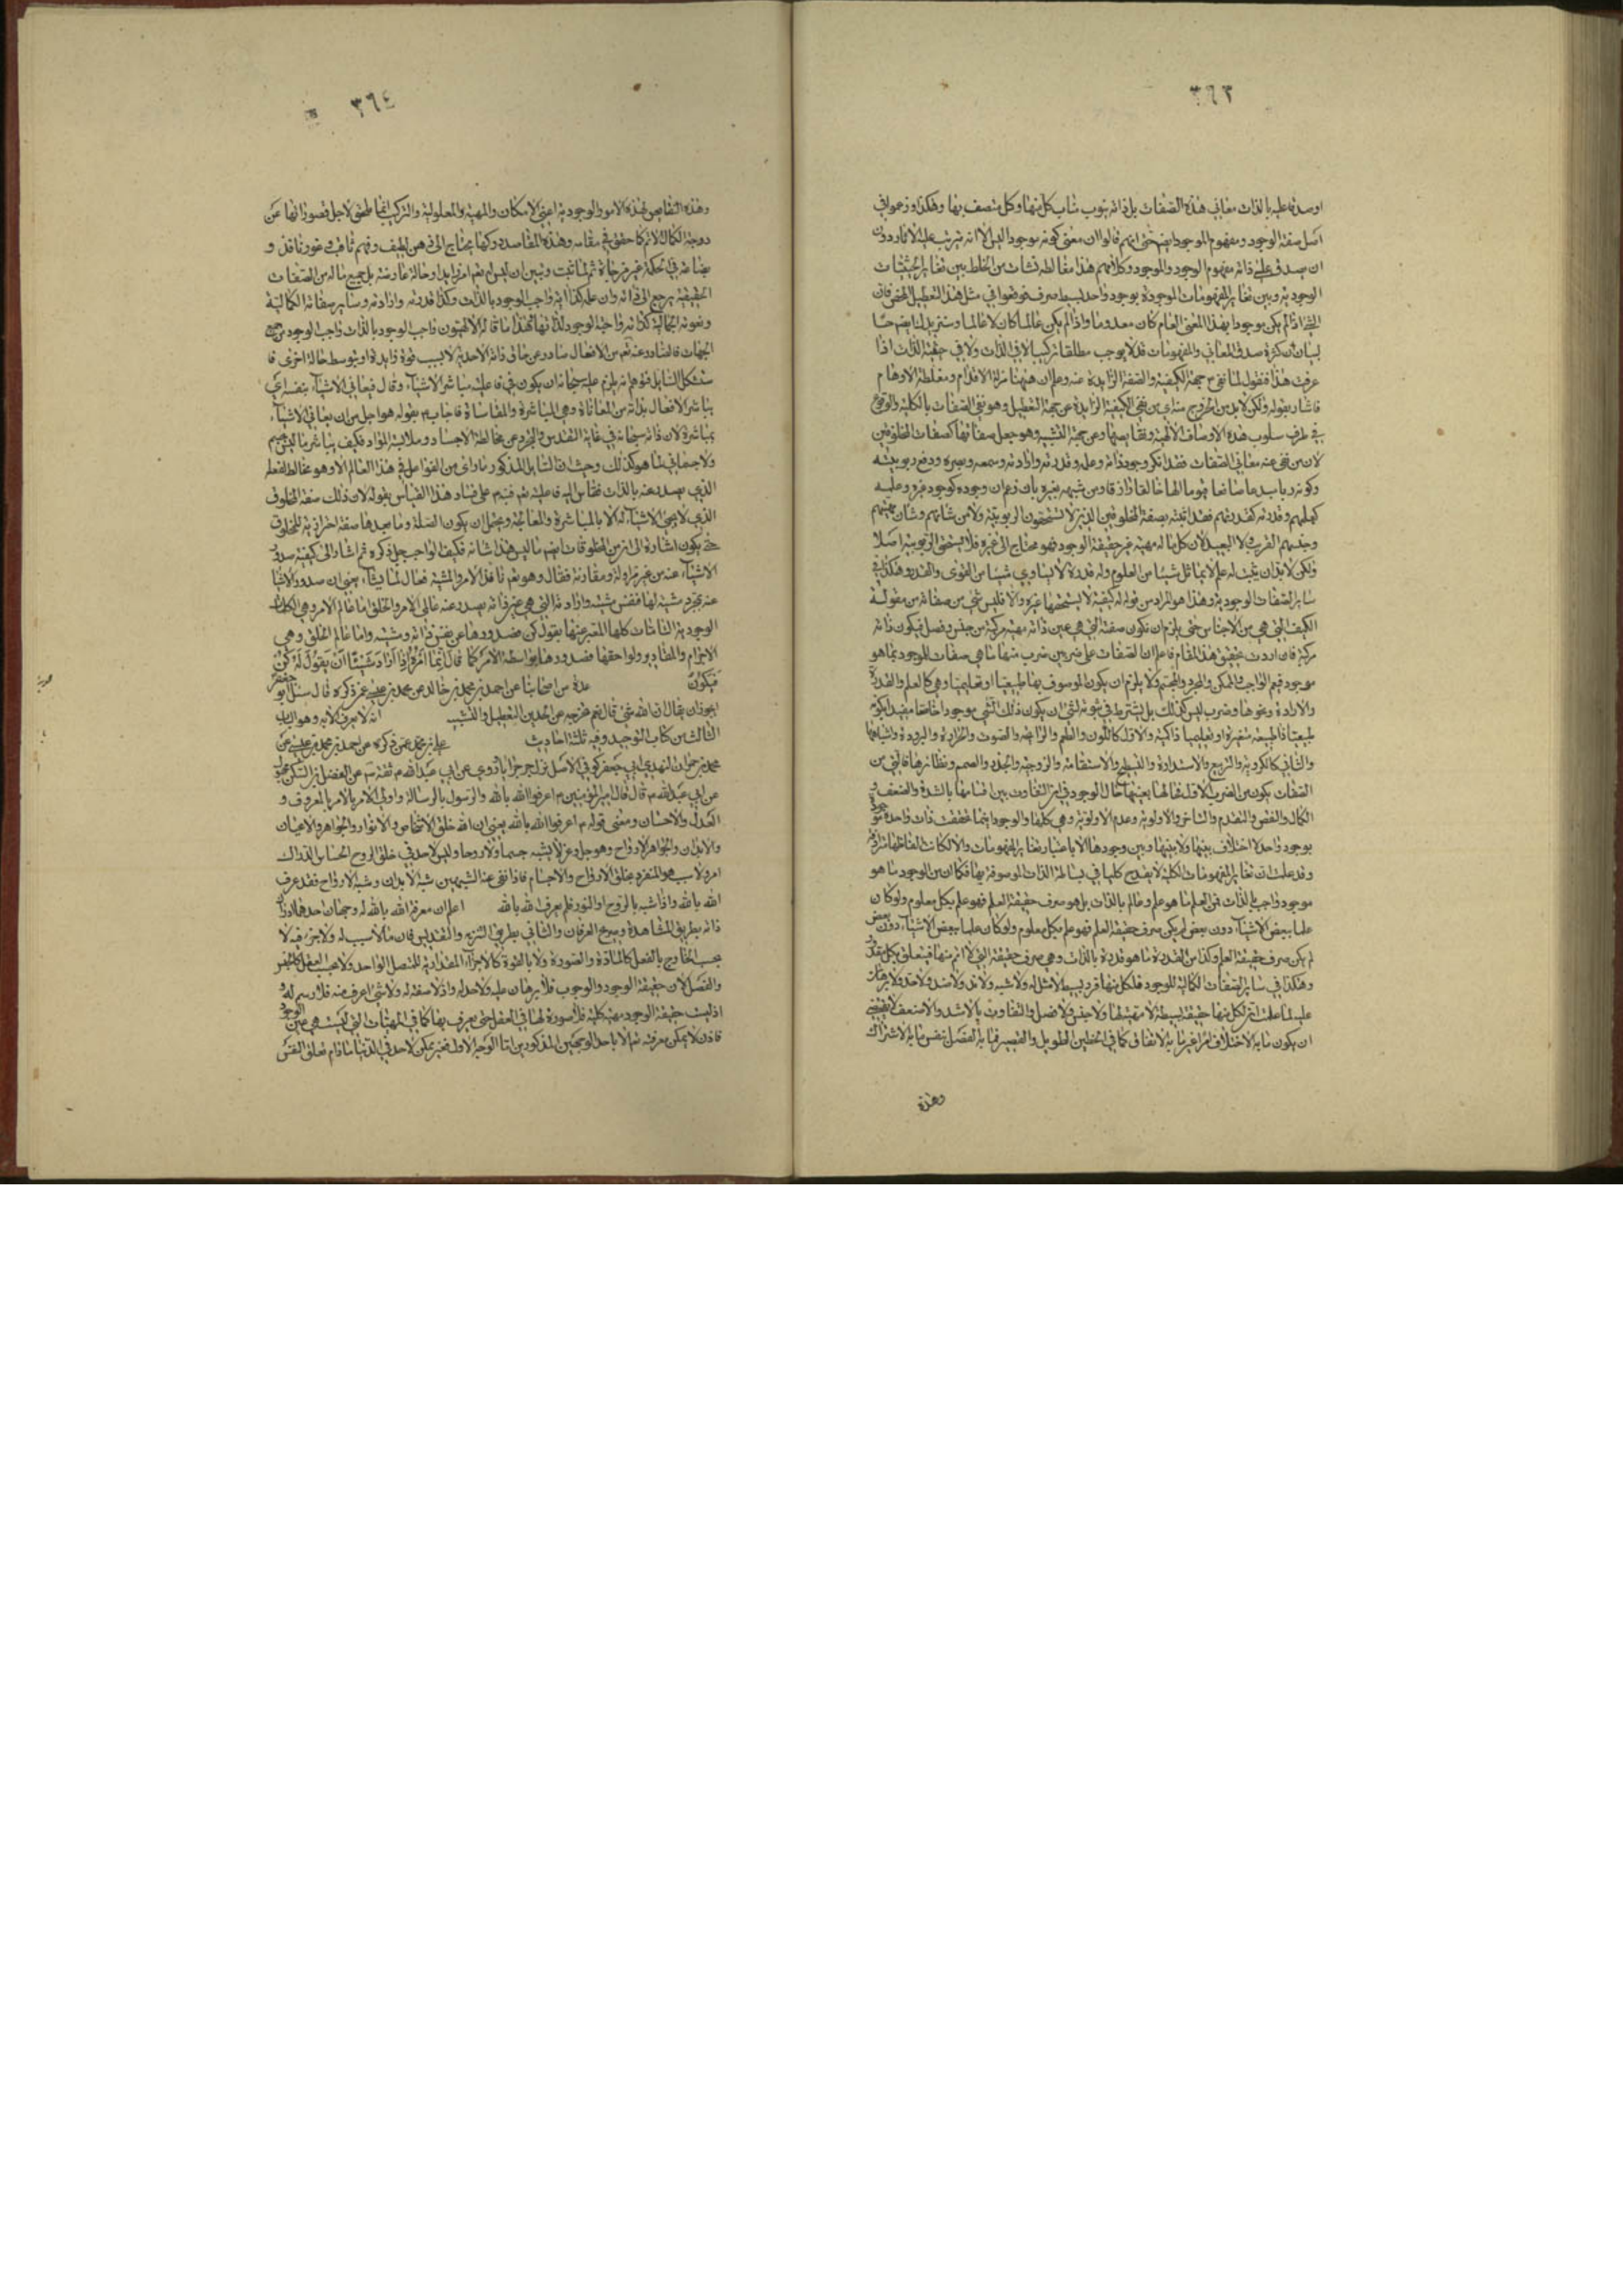 ٣٦٣
او صدقه عليه بالذات معاني هذه الصفات بل ذاته ينوب مناب كل منها وكل متصف بها وهكذا زعموا في
اصل صفة الوجود ومفهوم الموجود ايضا حتى انهم قالوا ان معنى كونه موجودا ليس الا انه يترتب عليه الاثار دون
ان يصدق على ذاته مفهوم الوجود والموجود وكلامهم هذا مغالطة نشات من الخلط بين تغاير الحيثيات
الوجودية وبين تغاير المفهومات الموجودة بوجود واحد بسيط صرف فوقعوا في مثل هذا التعطيل المحض فان
الشيء اذا لم يكن موجودا بهذا المعنى العام كان معدوما واذا لم يكن عالما كان لا عالما وسنزيدك ايضاحا
لبيان ان كثرة صدق المعاني والمفهومات قد لا يوجب مطلقا تركيبا لا في الذات ولا في حيثية الذات اذا
عرفت هذا فنقول لما نفي ع جهة الكيفية والصفة الزايدة عنه وعلم ان ههنا مزلة الاقدام ومغلطة الاوهام
فاشار بقوله ولكن لا بد من الخروج منه اي من نفي الكيفية الزايدة عن جهة التعطيل وهو نفي الصفات بالكلية والوقوع
في طرف سلوب هذه الاوصاف الالهية ونقايضها ومن جهة التشبيه وهو جعل صفاتها كصفات المخلوقين
لان من نفى عنه معاني الصفات فقد انكر وجود ذاته وعلمه وقدرته وارادته وسمعه وبصره ودفع ربوبيته
وكونه ربا مبدعا صانعا قيوما الها خالقا رازقا ومن شبهه بغيره بان زعم ان وجوده كوجود غيره وعلمه
كعلمهم وقدرته كقدرتهم فقد اثبته بصفة المخلوقين الذين لا يستحقون الربوبية
ولكن لا بد ان يثبت له علم لا يماثل شيئا من العلوم وله قدرة لا يساوي شيئا من القوى والقدر وهكذا في
ساير الصفات الوجودية وهذا هو المراد من قوله له كيفية لا يستحقها غيره والا فليس شيء من صفاته من مقولة
الكيف التي هي من الاجناس حتى يلزم ان تكون صفته التي هي عين ذاته مهية مركبة من جنس وفصل فيكون ذاته
مركبة فان اردت تحقيق هذا المقام فاعلم ان الصفات على ضربين ضرب منها ما هي صفات للموجود بما هو
موجود فيعم الواجب والممكن والمجرد والمجسم ولا يلزم ان يكون الموصوف بها طبيعيا او تعليميا وهي كالعلم والقدرة
والارادة ونحوها وضرب ليس كذلك بل يشترط في ثبوته لشيء ان يكون ذلك الشيء موجودا خاصا مقيدا بكونه
طبيعيا ذا طبيعة متغيرة او تعليميا ذا كمية والاول كاللون والطعم والرايحة والصوت والحرارة والبرودة واشباهها
والثاني كالكروية والتربيع والاستدارة والتسطيح والاستقامة والزوجية والجذر والصمم ونظائرها فالتي من
الصفات يكون من الضرب الاول فحالها بعينها حال الوجود في ان التفاوت بين اقسامها بالشدة والضعف و
الكمال والنقص والتقدم والتاخر والاولوية وعدم الاولوية وهي كلها والوجود اينما تحققت ذات واحدة موجود
بوجود واحد لا اختلاف بينها ولا بينها وبين وجودها الا باعتبار تغاير المفهومات والا لكانت الفاظها مترادفة
وقد علمت ان تغاير المفهومات الكلية لا يقدح كليها في بساطة الذات الموصوفة بها فكما ان من الوجود ما هو
موجود واجب بالذات فمن العلم ما هو علم وعالم بالذات بل هو صرف حقيقة العلم فهو علم بكل معلوم ولو كان
علما ببعض الاشياء دون بعض لم يكن صرف حقيقة العلم فهو علم بكل معلوم ولو كان علما ببعض الاشياء دون بعض
لم يكن صرف حقيقة العلم وكذا من القدرة ما هو قدرة بالذات وهي صرف حقيقة التي لا اتم منها فيتعلق بكل مقدور
وهكذا في ساير الصفات الكمالية للوجود فلكل منها فرد بسيط لا مثل له ولا شبه ولا ند ولا ضد ولا حد ولا برهان
عليه لما علمت ان لكل منها حقيقة بسيطة لا مهية لها ولا جنس ولا فصل والتفاوت بالاشد والاضعف لا يقتضي
ان يكون ما به الاختلاف امرا غير ما به الاتفاق كما في الخطين الطويل والقصير فما به الفضل نفس ما به الاشتراك
وهذه
٣٦٤
وهذه النقايص لهذه الامور الوجودية اعني الامكان والمهية والمعلولية والتركيب انما طحق لاجل قصوراتها عن
درجة الكمال الاتم كما حقق في مقامه وهذه المقاصد دركها يحتاج الى ذهن لطيف وفهم ثاقب وغور نافذ و
بضاعة في الحكمة غير مزجاة ثم لما ثبت وتبين ان ليس له تعالى امر زايد او حالة عارضة بل جميع ماله من الصفات
الحقيقية يرجع الى ذاته وان علمه كذاته واجب الوجود بالذات وكذا قدرته وارادته وساير صفاته الكمالية
ونعوته الجمالية كذاته واجبة الوجود لذاتها لهذا ما قاله الالهيون واجب الوجود بالذات واجب الوجود من جميع
الجهات فالصادر عنه تعالى من الافعال صادر عن حاق ذاته الاحدية لا بسبب قوة زايدة او بتوسط حالة اخرى فا
ستشكل السايل فتوهم انه يلزم عليه سبحانه ان يكون في فاعليته مباشر الاشياء وقال فيعاني الاشياء بنفسه اي
يباشر الافعال بذاته من المعاناة وهي المباشرة والمقاساة فاجاب ع بقوله هو اجل من ان يعاني الاشياء
بمباشرة لان ذاته سبحانه في غاية التقدس والتجرد عن مخالطة الاجساد وملابسة المواد فكيف يباشر ما ليس بجسم
ولا جسماني بما هو كذلك وحيث ان السايل المذكور ما راى من الفواعل في هذا العالم الا وهو مخالط لفعله
الذي يصدر عنه بالذات فقاس اليه فاعليته تعالى فنبه ع على فساد هذا القياس بقوله لان ذلك صفة المخلوق
الذي لا يجيء الاشياء له الا بالمباشرة والمعالجة ويحتمل ان يكون الصلة وما بعدها صفة احترازية للمخلوق
حتى يكون اشارة الى ان من المخلوقات ايضا ما ليس هذا شانه فكيف الواجب جل ذكره ثم اشار الى كيفية صدور
الاشياء عنه من غير مزاولة ومقارنة فقال وهو تعالى نافذ الامر والمشية فعال لما يشاء يعني ان صدور الاشياء
عنه بمجرد مشية لها فنفس مشيته وارادته التي هي عين ذاته يصدر عنه عالمي الامر والخلق اما عالم الامر وهي الكلمات
الوجودية التامات كلها المعبر عنها بقول كن فصدورها عن نفس ذاته ومشيته واما عالم الخلق وهي
الاجرام والمقادير ولواحقها فصدورها بواسطة الامر كما قال انما امره اذا اراد شيئا ان يقول له كن
فيكون عدة من اصحابنا عن احمد بن محمد بن خالد عن محمد بن عيسى عمن ذكره قال سئل ابو جعفر
ايجوز ان يقال ان الله شيء قال نعم يخرجه من الحدين التعطيل والتشبيه انه لا يعرف الا به وهو الباب
الثالث من كتاب التوحيد وفيه ثلثة احاديث علي بن محمد عمن ذكره عن احمد بن محمد بن عيسى عن
محمد بن حمران النهدي ابي جعفر كوفي الاصل نزل جرجرايا روى عن ابي عبد الله ع ثقة عن الفضل بن السكن مجهول
عن ابي عبد الله ع قال قال امير المؤمنين ع اعرفوا الله بالله والرسول بالرسالة واولي الامر بالامر بالمعروف و
العدل والاحسان ومعنى قوله ع اعرفوا الله بالله يعني ان الله خلق الاشخاص والانوار والجواهر والاعيان
والابدان والجواهر الارواح وهو جل وعز لا يشبه جسما ولا روحا وليس لاحد في خلق الروح الحساس الدراك
امر ولا سبب هو المتفرد بخلق الارواح والاجسام فاذا نفى عنه الشبهين شبه الابدان وشبه الارواح فقد عرف
الله بالله واذا شبه بالروح او النور فلم يعرف الله بالله اعلم ان معرفة الله بالله له وجهان احدهما ادراك
ذاته بطريق المشاهدة وصريح العرفان والثاني بطريق التنزيه والتقديس فان ما لا سبب له ولا جزء فيه لا
بحسب الخارج بالفعل كالمادة والصورة ولا بالقوة كالاجزاء المقدارية للمتصل الواحد ولا بحسب العقل كالجنس
والفصل لان حقيقة الوجود والوجوب فلا برهان عليه ولا حد له واذ لا صفة له ولا شيء اعرف منه فلا رسم له و
اذ ليست حقيقة الوجود مهية كلية فلا صورة لها في العقل حتى يعرف بها كما في المهيات التي ليست هي عين الوجود
فاذن لا يمكن معرفته تعالى الا باحد الوجهين المذكورين اما الوجه الاول فغير ممكن لاحد في الدنيا ما دام تعلق النفس